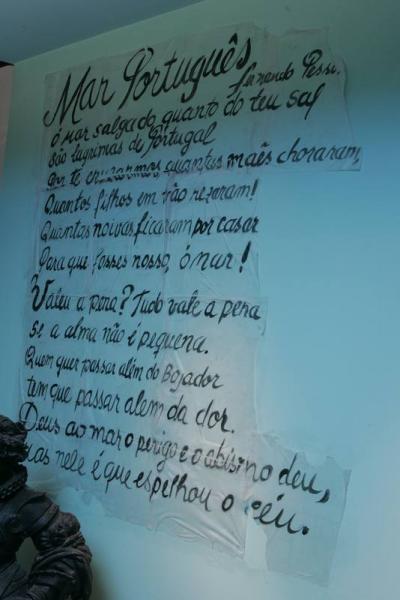 Mar Português
Fernando Pessoa
ó mar salgado, quanto do teu sal
São lágrimas de Portugal
Por te cruzarmos, quantas maẽs choraram,
Quantos filhos em vão rezaram!
Quantas noivas ficaram por casar
Para que fosses nosso, ó mar!
Valeu a pena? Tudo vale a pena
Se a alma não é pequena.
Quem quer passar além do Bojador
tem que passar além da dor.
Deus ao mar o perigo e o abismo deu,
Mas nele é que espelhou o céu.